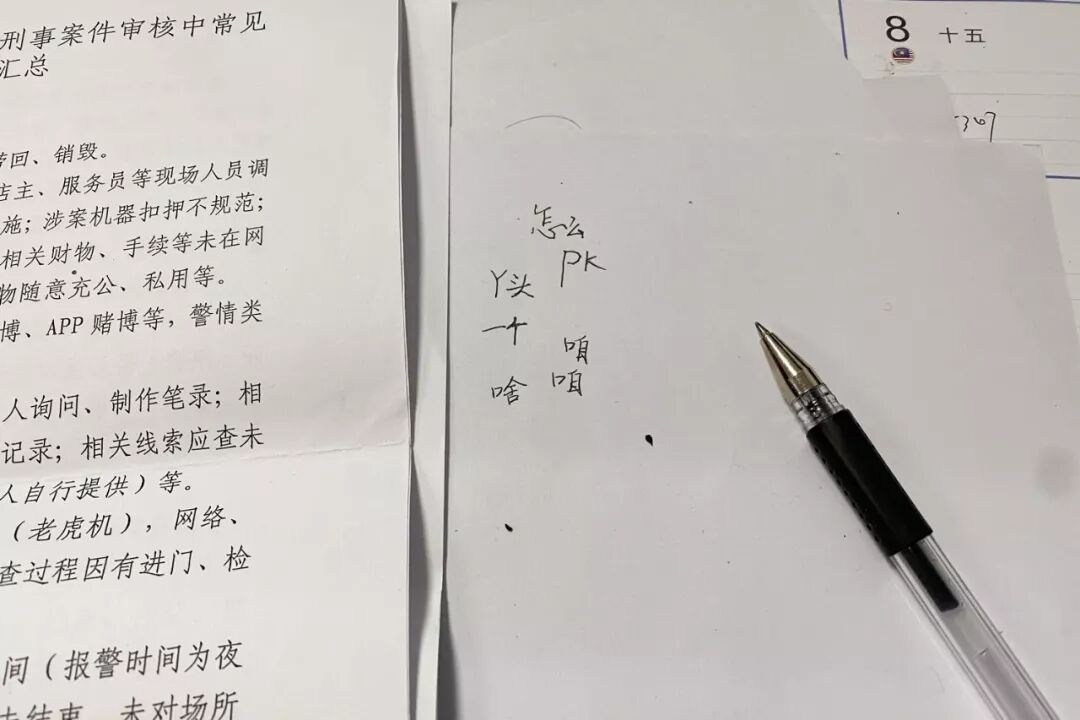 刑事案件审核中常见
汇总
回、销毁。
店主、服务员等现场人员调
施；涉案机器扣押不规范；
相关财物、手续等未在网
物随意充公、私用等。
博、APP 赌博等，警情类
人询问、制作笔录；相
记录；相关线索应查未
人自行提供）等。
（老虎机），网络、
查过程因有进门、检
间（报警时间为夜
未对场所
怎么
PK
丫头
一个
咱
啥
咱
8 十五
367